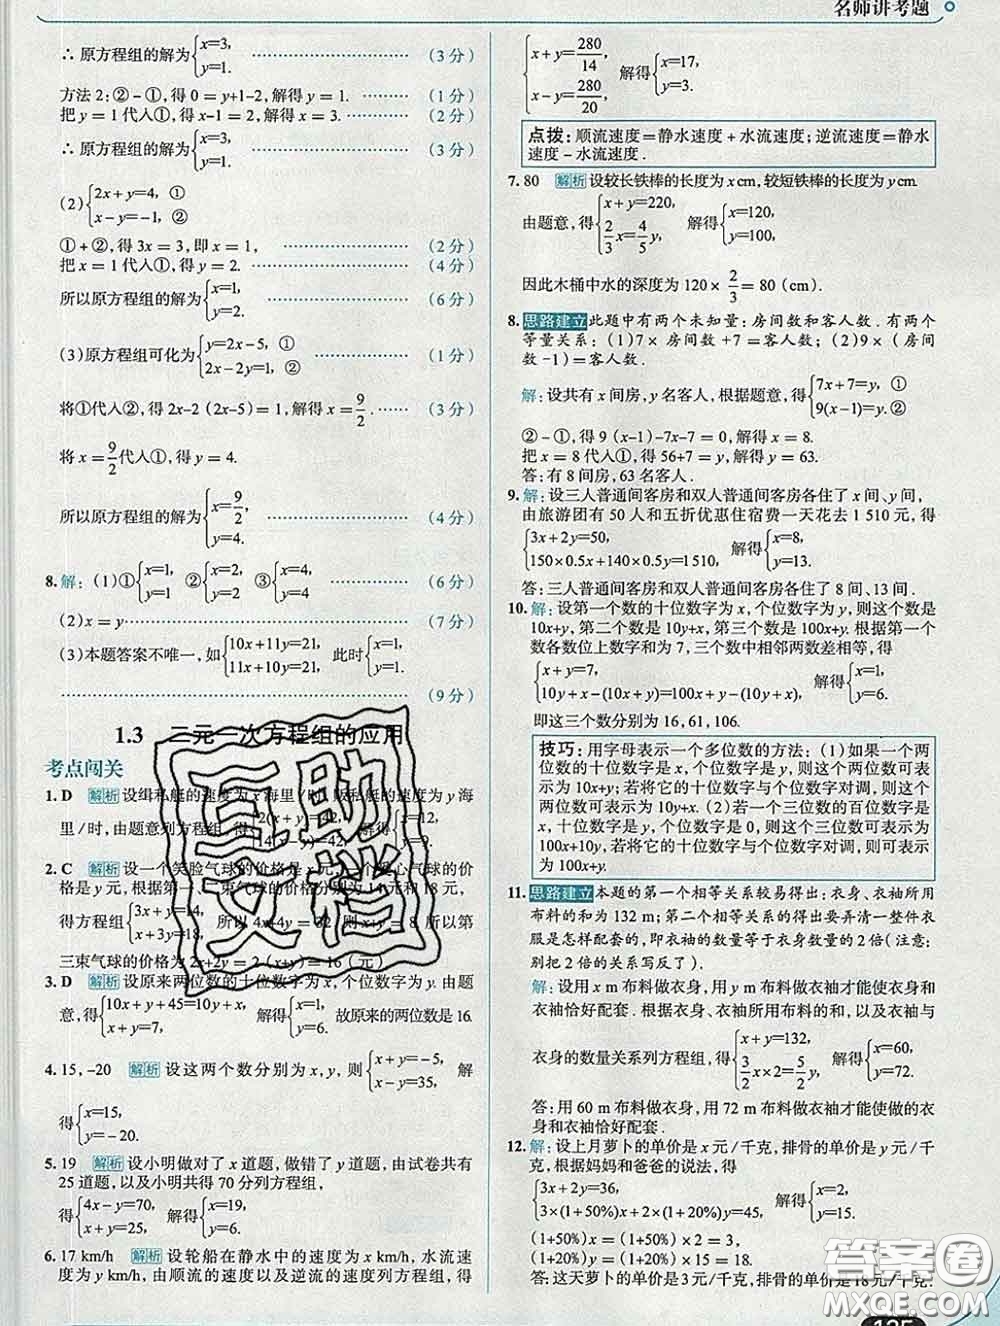 名师讲考题
∴ 原方程组的解为{x=3, y=1. (3分)
方法2:②-①,得 0=y+1-2,解得 y=1. ……… (1分)
把 y=1 代入①,得 x-1=2,解得 x=3. ……… (2分)
∴ 原方程组的解为{x=3, y=1. (3分)
(2){2x+y=4, ① x-y=-1, ②
①+②,得 3x=3,即 x=1, ……… (2分)
把 x=1 代入①,得 y=2. ……… (4分)
所以原方程组的解为{x=1, y=2. ……… (6分)
(3)原方程组可化为{y=2x-5, ① 2x-2y=1, ② ……… (1分)
将①代入②,得 2x-2(2x-5)=1,解得 x=9/2. …… (3分)
将 x=9/2代入①,得 y=4.
所以原方程组的解为{x=9/2, y=4. ……… (4分)
8.解:(1)①{x=1, y=1. ②{x=2, y=2. ③{x=4, y=4. ……… (6分)
(2)x=y ……… (7分)
(3)本题答案不唯一,如{10x+11y=21, 11x+10y=21, 此时{x=1, y=1.
……… (9分)
1.3 二元一次方程组的应用
考点闯关
1. D 解析 设缉私艇的速度为 x 海里/时,走私艇的速度为 y 海
里/时,由题意列方程组,得 解得
2. C 解析 设一个笑脸气球的价格是 x 元,一个爱心气球的价
格是 y 元,根据第一、二束气球的价格分别为14元和18元,
得方程组{3x+y=14, x+3y=18, 所以 4x+4y=32, 所以第
三束气球的价格为 2x+2y=2(x+y)=16(元)
3. D 解析 设原来两位数的十位数字为x,个位数字为y. 由题
意,得{10x+y+45=10y+x, x+y=7, 解得{x=1, y=6. 故原来的两位数是16.
4. 15, -20 解析 设这两个数分别为 x, y, 则{x+y=-5, x-y=35, 解
得{x=15, y=-20.
5. 19 解析 设小明做对了 x 道题,做错了 y 道题,由试卷共有
25 道题,以及小明共得 70 分列方程组,
得{4x-y=70, x+y=25, 解得{x=19, y=6.
6. 17 km/h 解析 设轮船在静水中的速度为 x km/h,水流速
度为 y km/h,由顺流的速度以及逆流的速度列方程组,得
{x+y=280/14, x-y=280/20, 解得{x=17, y=3.
点拨:顺流速度=静水速度+水流速度;逆流速度=静水
速度-水流速度.
7. 80 解析 设较长铁棒的长度为 x cm,较短铁棒的长度为 y cm.
由题意,得{x+y=220, 2/3x=4/5y, 解得{x=120, y=100,
因此木桶中水的深度为 120×2/3=80(cm).
8. 思路建立 此题中有两个未知量:房间数和客人数.有两个
等量关系:(1)7×房间数+7=客人数;(2)9×(房间
数-1)=客人数.
解:设共有 x 间房,y 名客人,根据题意,得{7x+7=y, ① 9(x-1)=y. ②
②-①,得 9(x-1)-7x-7=0,解得 x=8.
把 x=8 代入①,得 56+7=y, y=63.
答:有 8 间房,63 名客人.
9.解:设三人普通间客房和双人普通间客房各住了 x 间、y 间,
由旅游团有 50 人和五折优惠住宿费一天花去 1 510 元,得
{3x+2y=50, 150×0.5x+140×0.5y=1 510, 解得{x=8, y=13.
答:三人普通间客房和双人普通间客房各住了 8 间、13 间.
10.解:设第一个数的十位数字为 x,个位数字为 y,则这个数是
10x+y,第二个数是 10y+x,第三个数是 100x+y. 根据第一个
数各数位上数字和为 7,三个数中相邻两数差相等,得
{x+y=7, 10y+x-(10x+y)=100x+y-(10y+x), 解得{x=1, y=6.
即这三个数分别为 16,61,106.
技巧:用字母表示一个多位数的方法:(1)如果一个两
位数的十位数字是 x,个位数字是 y,则这个两位数可表
示为10x+y;若将它的十位数字与个位数字对调,则这个
两位数可表示为10y+x. (2)若一个三位数的百位数字是
x,十位数字是y,个位数字是0,则这个三位数可表示为
100x+10y,若将它的十位数字与个位数字对调,则可表示
为100x+y.
11. 思路建立 本题的第一个相等关系较易得出:衣身、衣袖所用
布料的和为 132 m;第二个相等关系的得出要弄清一整件衣
服是怎样配套的,即衣袖的数量等于衣身数量的2倍(注意:
别把2倍的关系写反了).
解:设用 x m 布料做衣身,用 y m 布料做衣袖才能使衣身和
衣袖恰好配套. 根据衣身、衣袖所用布料的和,以及衣袖与
衣身的数量关系列方程组,得{x+y=132, 3/2x×2=5/2y, 解得{x=60, y=72.
答:用 60 m 布料做衣身,用 72 m 布料做衣袖才能使做的衣
身和衣袖恰好配套.
12.解:设上月萝卜的单价是 x 元/千克,排骨的单价是 y 元/千
克,根据妈妈和爸爸的说法,得
{3x+2y=36, 3×(1+50%)x+2×(1+20%)y=45, 解得{x=2, y=15.
(1+50%)x=(1+50%)×2=3,
(1+20%)y=(1+20%)×15=18.
答:这天萝卜的单价是3元/千克,排骨的单价是18元/千克.
互助
文档
答案圈
MXQE.COM
125